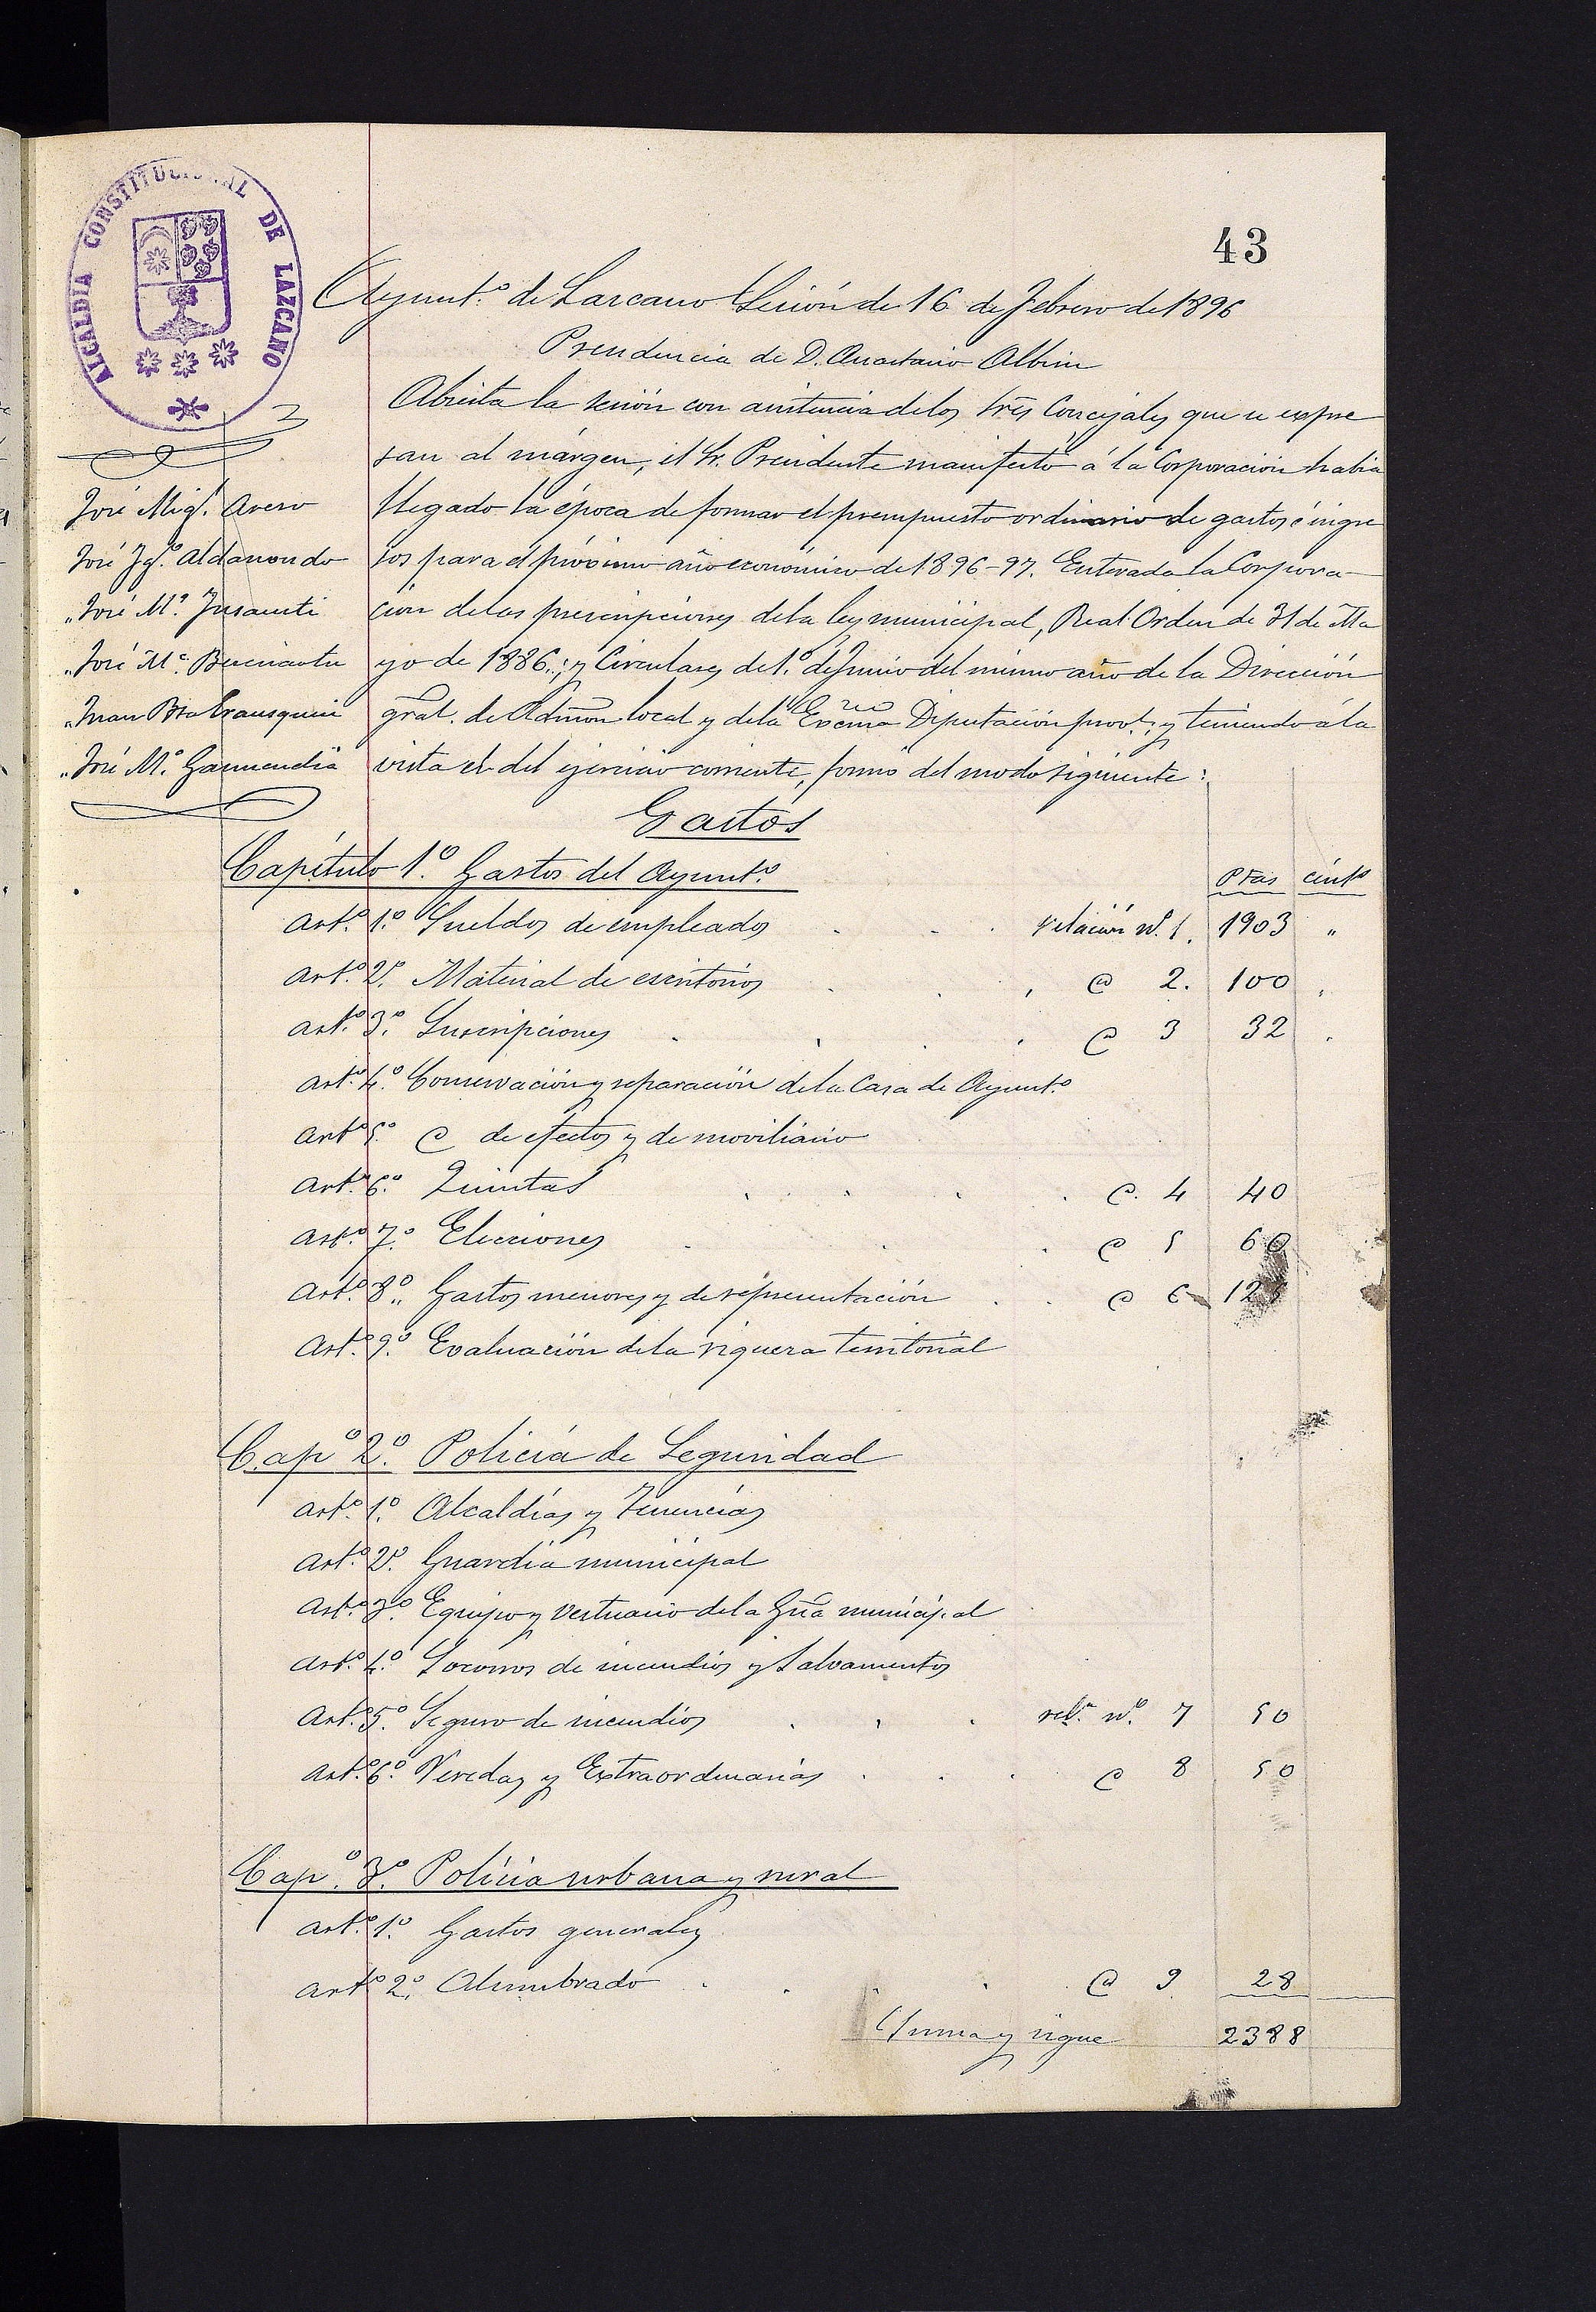 43
ALCALDIA CONSTITUCIONAL DE LAZCANO
Ayunt.º de Lazcano Sesión de 16 de Febrero de 1896
Presidencia de D. Anastasio Albisu
José Mig.l Arero
José Ig.º Aldanondo
" José M.ª Insausti
" José M.ª Bereciartu
" Juan Bta Erausquin
" José M.ª Garmendia
Abierta la sesión con asistencia de los Sres Concejales que se expre
san al márgen, el Sr. Presidente manifestó á la Corporación habia
llegado la época de formar el presupuesto ordinario de gastos é ingre
sos para el próximo año económico de 1896-97. Enterada la Corpora-
ción de las prescripciones de la ley municipal, Real Orden de 31 de Ma
yo de 1886; y Circulares de 1.º de Junio del mismo año de la Dirección
gral. de Admon local y de la Excma Diputación provl.; y teniendo á la
vista el del ejercicio corriente, formó del modo siguiente:
Gastos
Capítulo 1.º Gastos del Ayunt.º Ptas cént.s
Art.º 1.º Sueldos de empleados . . . relación nº. 1. 1903 "
Art.º 2.º Material de escritorios . . , @ 2. 100 ,
Art.º 3.º Suscripciones . . . . @ 3 32 .
Art.º 4.º Conservación y reparación de la Casa de Ayunt.º
Art.º 5.º @ de efectos y de moviliario
Art.º 6.º Quintas . . . . @. 4 40
Art.º 7.º Elecciones . . . @ 5 60
Art.º 8.º Gastos menores y de representación . . @ 6 125
Art.º 9.º Evaluación de la riqueza territorial
Cap.º 2.º Policía de Seguridad
Art.º 1.º Alcaldías y Tenencias
Art.º 2.º Guardia municipal
Art.º 3.º Equipo y vestuario de la Gria municipal
Art.º 4.º Socorros de incendios y Salvamentos
Art.º 5.º Seguro de incendios . . . rel.n nº. 7 50
Art.º 6.º Veredas y Extraordinarias . . . @ 8 50
Cap.º 3.º Policía urbana y rural
Art.º 1.º Gastos generales
Art.º 2.º Alumbrado . . . . @ 9 28
Suma y sigue 2388